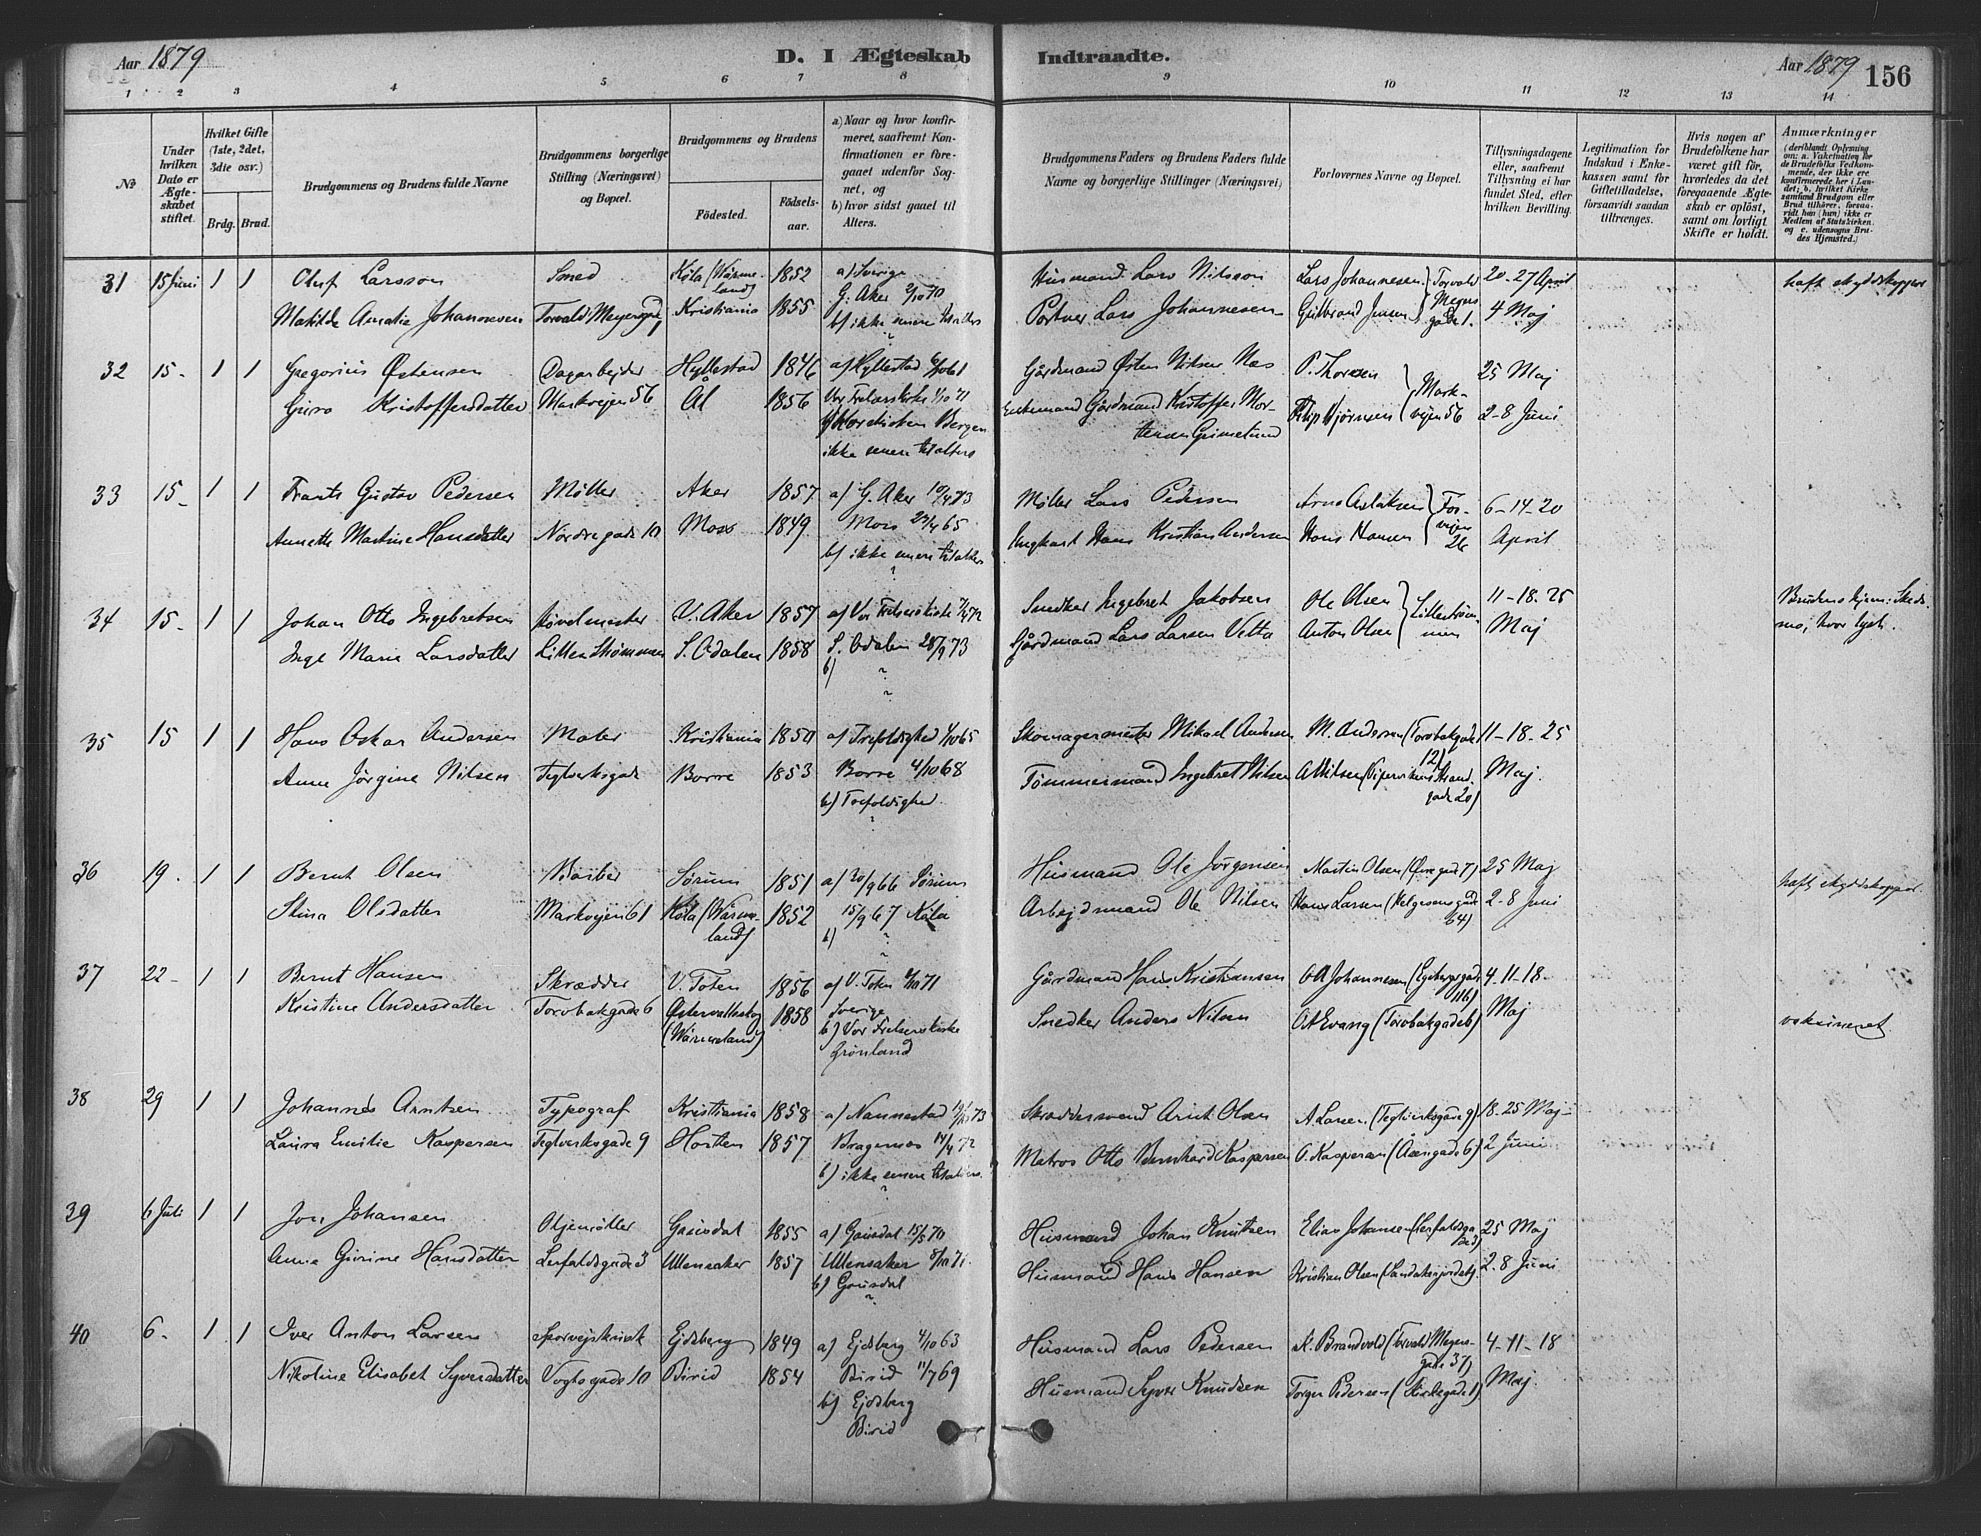 Aar 1879
D. I Ægteskab Indtraadte.
Aar 1879 156
1 2 3 4 5 6 7 8 9 10 11 12 13 14
No
Under hvilken Dato er Ægteskabet stiftet.
Hvilket Gifte (1ste, 2det, 3die osv.)
Brdg. Brud.
Brudgommens og Brudens fulde Navne
Brudgommens borgerlige Stilling (Næringsvei) og Bopæl.
Brudgommens og Brudens
Fødested.
Fødselsaar.
a) Naar og hvor konfirmeret, saafremt Konfirmationen er foregaaet udenfor Sognet, og
b) hvor sidst gaaet til Alters.
Brudgommens Faders og Brudens Faders fulde Navne og borgerlige Stillinger (Næringsvei)
Forlovernes Navne og Bopæl.
Tillysningsdagene eller, saafremt Tillysning ei har fundet Sted, efter hvilken Bevilling.
Legitimation for Indskud i Enkekassen samt for Giftetilladelse, forsaavidt saadan tiltrænges.
Hvis nogen af Brudefolkene har været gift før, hvorledes da det foregaaende Ægteskab er opløst, samt om lovligt Skifte er holdt.
Anmærkninger
(deriblandt Oplysning om: a. Vakcination for de Brudefolks Vedkommende, der ikke ere konfirmerede her i Landet; b. hvilket Kirkesamfund Brudgom eller Brud tilhører, forsaavidt han (hun) ikke er Medlem af Statskirken, og c. udensogns Brudes Hjemsted.)
31 15 Juni 1 1 Oluf Larsson Smed Køla (Wärmeland) 1852 a) Sverige Husmand Lars Nilsson Lars Johannesen 20-27 April haft skydskopper
Matilde Amalie Johannesen Torvald Meyersgade 1 Kristiania 1855 G. Aker 2/10 70 Portner Lars Johannesen Gulbrand Jensen Torvald Meyersgade 1. 4 Maj
b) ikke senere til alters
32 15- 1 1 Gregorius Østensen Dagarbejder Hyllestad 1846 a) Hyllestad 6/10 61 Gårdmand Østen Nilsen Næs P. Thoresen 25 Maj
Guro Kristoffersdatter Markvejen 56 Ål 1856 Vor Frelserskirke 1/10 71 Enkemand Gårdmand Kristoffer Mortensen Grimelund Filip Bjørnsen Markvejen 56 2-8 Juni
b) Korskirken Bergen
ikke senere til alters
33 15- 1 1 Frants Gustav Pedersen Møller Aker 1857 a) G. Aker 10/4 73 Møller Lars Pedersen Arne Aslaksen 6-14-20
Annette Martine Hansdatter Nordregade 10 Moss 1849 Moss 23/4 65 Ungkarl Hans Kristian Andersen Hans Hansen Forvejen 26 April
b) ikke senere til alters
34 15- 1 1 Johan Otto Ingebretsen Høvelmester V. Aker 1857 a) Vor Frelserskirke 7/4 72 Snedker Ingebret Jakobsen Ole Olsen 11-18-25 Brudens hjem: Skedsmo, hvor lyst.
Inge Marie Larsdatter Lillestrømmen S. Odalen 1858 S. Odalen 28/9 73 Gårdmand Lars Larsen Vetta Anton Olsen Lillestrømmen Maj
b) "
35 15 1 1 Hans Oskar Andersen Maler Kristiania 1850 a) Trefoldighed 1/10 65 Skomagermester Mikael Andersen M. Andersen (Torvbakgade 12) 11-18-25
Anne Jørgine Nilsen Teglverksgade Borre 1853 Borre 4/10 68 Tømmermand Ingebret Nilsen A Nilsen (Pipervikens Strandgade 20) Maj.
b) Trefoldighed
36 19. 1 1 Bernt Olsen Arbeider Sørum 1851 a) 30/9 66 Sørum Husmand Ole Jørgensen Martin Olsen (Øvregade 7) 25 Maj haft skydskopper.
Stina Olsdatter Markvejen 61 Køla (Wärmeland) 1852 15/9 67 Køla Arbejdsmand Ole Nilsen Hans Larsen (Helgesensgade 64) 2-8 Juni
b) "
37 22- 1 1 Bernt Hansen Skrædder V. Toten 1856 a) V. Toten 1/10 71 Gårdmand Hans Kristiansen O A Johannesen 4-11-18-
Kristine Andersdatter Torvbakgade 6 Østervallskog (Wärmeland) 1858 Sverige Snedker Anders Nilsen O A Evang (Torvbakgade 6) Maj vakcineret
b) Vor Frelserskirke
Grønland
38 29 1 1 Johannes Arntsen Typograf Kristiania 1858 a) Nannestad Skræddersvend Arnt Olsen A Larsen (Teglverksgade 9) 18-25 Maj-
Laura Emilie Kaspersen Teglverksgade 9 Horten 1857 Bragernes 14/4 72 Matros Otto Bernhard Kaspersen O. Kaspersen (Åsengade 6) 2 Juni
b) ikke senere til alters.
39 6 Juli 1 1 Jon Johansen Oljemøller Gausdal 1855 a) Gausdal 15/5 70 Husmand Johan Knutsen Elias Johansen (Lerfaldsgade 3) 25 Maj
Anne Gurine Hansdatter Lerfaldsgade 3 Ullensaker 1857 Ullensaker 8/10 71. Husmand Hans Hansen Kristian Olsen 2-8 Juni
b) Gausdal
40 6- 1 1 Iver Anton Larsen Sporvejskusk Ejdsberg 1849 a) Ejdsberg 4/10 63 Husmand Lars Pedersen K. Brandvold (Torvald Meyersgade 37) 4-11-18
Nikoline Elisabet Syversdatter Vogtsgade 10 Birid 1854 Birid 11/7 69 Husmand Syver Knudsen Torger Pedersen (Kirkegade 1) Maj.
b) Ejdsberg
Birid